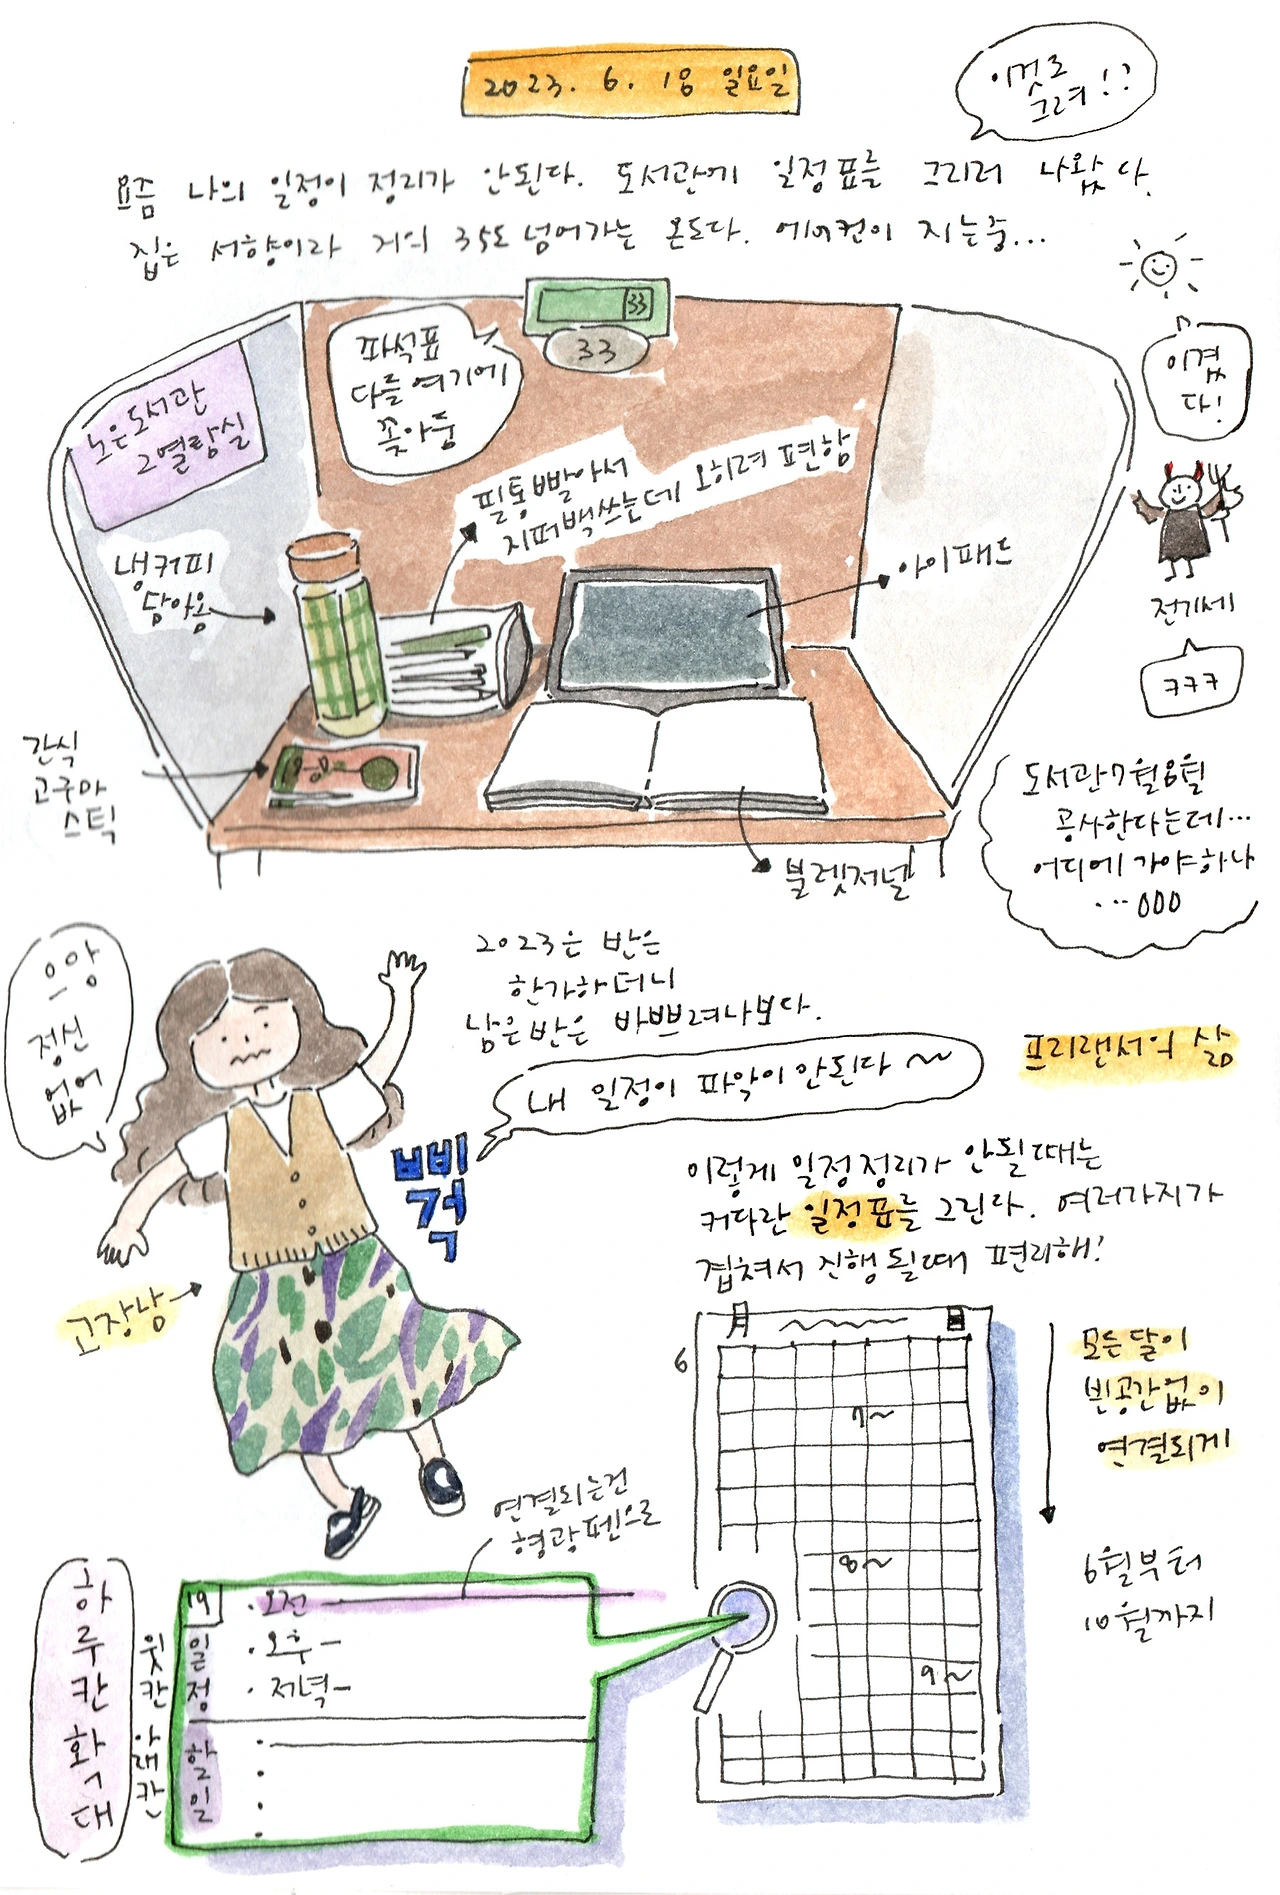 2023. 6. 18 일요일
이것도
그려!?
요즘 나의 일정이 정리가 안된다. 도서관에 일정표를 그리러 나왔다.
집은 서향이라 거의 35도 넘어가는 온도다. 에어컨이 지는중...
이겼
다!
전기세
ㅋㅋㅋ
33
33
좌석표
다들 여기에
꽂아둠
노은도서관
2열람실
필통빨아서
지퍼백쓰는데 오히려 편함
냉커피
담아옴
아이패드
간식
고구마
스틱
불렛저널
도서관7월8월
공사한다는데...
어디에 가야하나
...000
으앙
정신
없어
2023은 반은
한가하더니
남은반은 바쁘려나보다.
내 일정이 파악이 안된다~
프리랜서의 삶
삐걱
고장남
이렇게 일정정리가 안될때는
커다란 일정표를 그린다. 여러가지가
겹쳐서 진행될때 편리해!
月
日
6
7~
8~
9~
모든달이
빈공간없이
연결되게
6월부터
10월까지
연결되는건
형광펜으로
하루칸확대
윗칸
아래칸
19
일정
· 오전
· 오후
· 저녁
할일